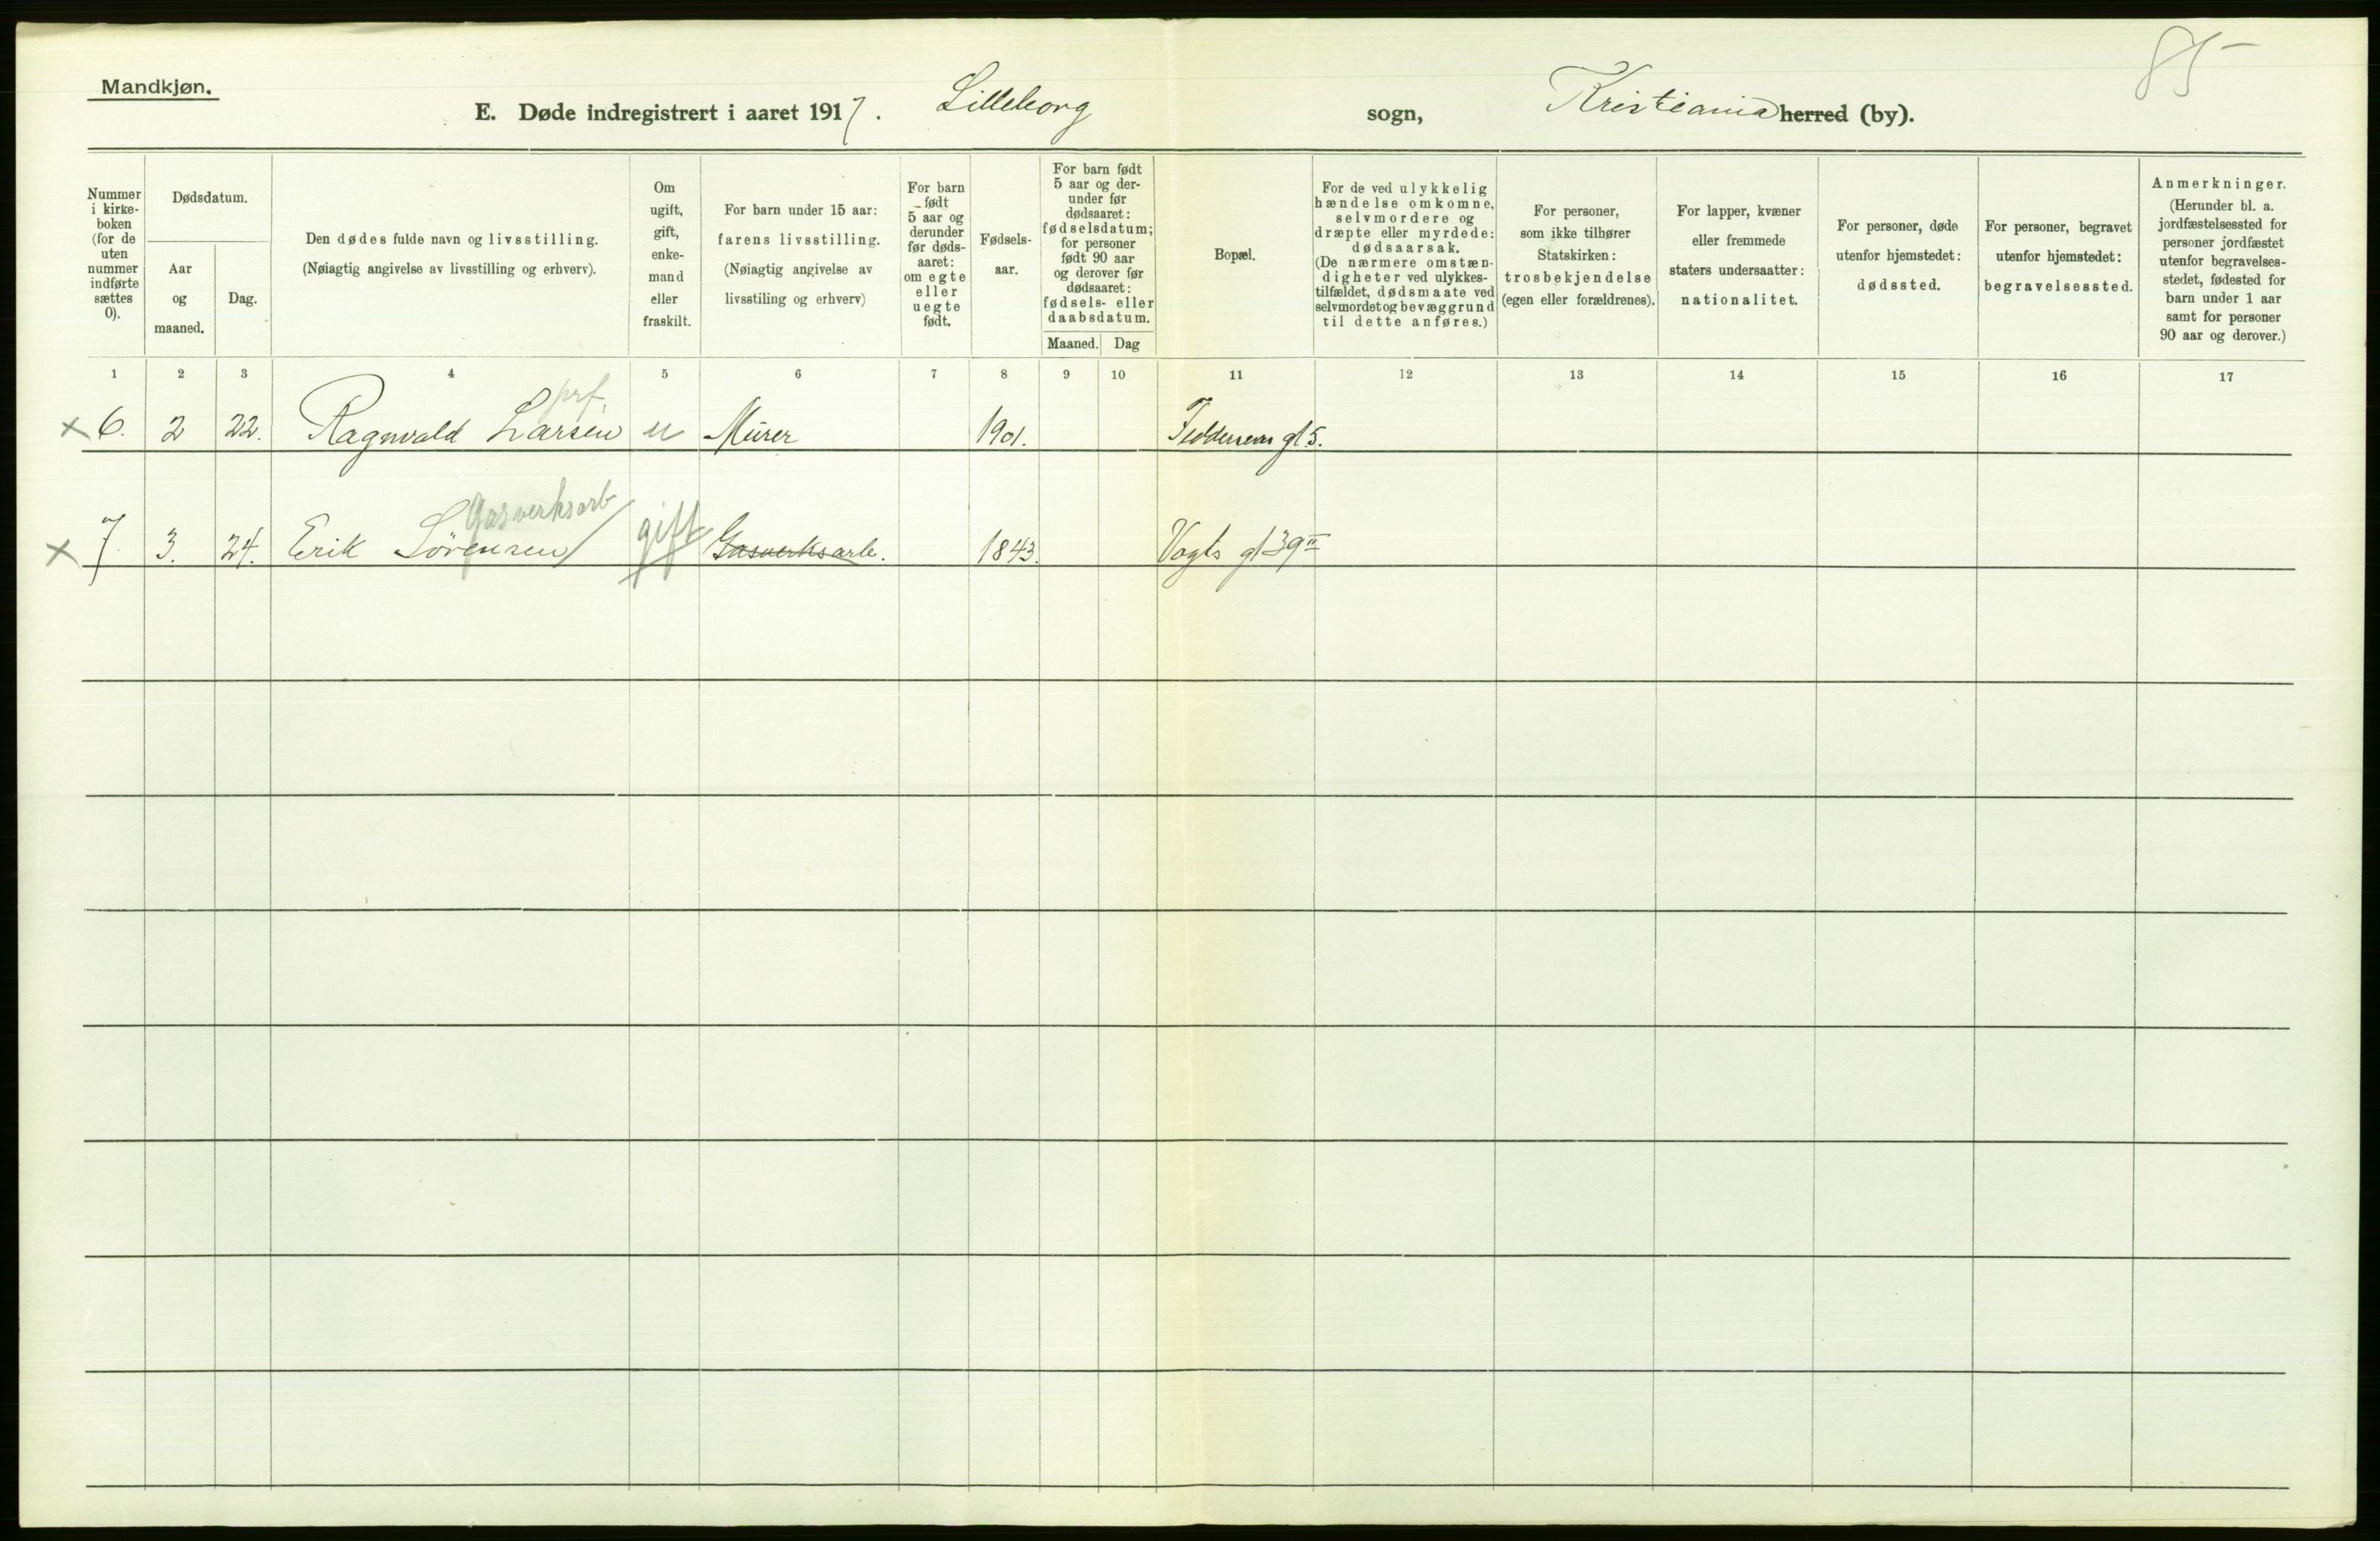 85
Mandkjøn.
E. Døde indregistrert i aaret 1917. Lilleborg sogn, Kristiania herred (by).
Nummer i kirke-boken (for de uten nummer indførte sættes 0).
Dødsdatum.
Aar og maaned.
Dag.
Den dødes fulde navn og livsstilling.
(Nøiagtig angivelse av livsstilling og erhverv).
Om ugift, gift, enke-mand eller fraskilt.
For barn under 15 aar: farens livsstilling.
(Nøiagtig angivelse av livsstiling og erhverv)
For barn født 5 aar og derunder før døds-aaret: om egte eller uegte født.
Fødsels-aar.
For barn født 5 aar og der-under før dødsaaret: fødselsdatum; for personer født 90 aar og derover før dødsaaret: fødsels- eller daabsdatum.
Maaned. Dag
Bopæl.
For de ved ulykkelig hændelse omkomne, selvmordere og dræpte eller myrdede: dødsaarsak.
(De nærmere omstæn-digheter ved ulykkes-tilfældet, dødsmaate ved selvmordet og bevæggrund til dette anføres.)
For personer, som ikke tilhører Statskirken: trosbekjendelse (egen eller forældrenes).
For lapper, kvæner eller fremmede staters undersaatter: nationalitet.
For personer, døde utenfor hjemstedet: dødssted.
For personer, begravet utenfor hjemstedet: begravelsessted.
Anmerkninger.
(Herunder bl. a. jordfæstelsessted for personer jordfæstet utenfor begravelses-stedet, fødested for barn under 1 aar samt for personer 90 aar og derover.)
1 2 3 4 5 6 7 8 9 10 11 12 13 14 15 16 17
prf.
x 6. 2 22. Ragnvald Larsen u Murer 1901. Feddersens gt 5.
Gasverksarb
x 7. 3. 24. Erik Sörensen gift Gasverksarb. 1843. Vogts gt 39 II